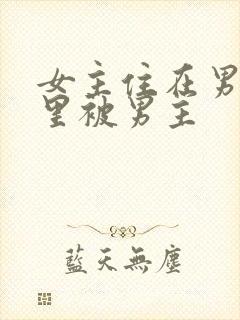 女主住在男
里被男主
藍天無塵